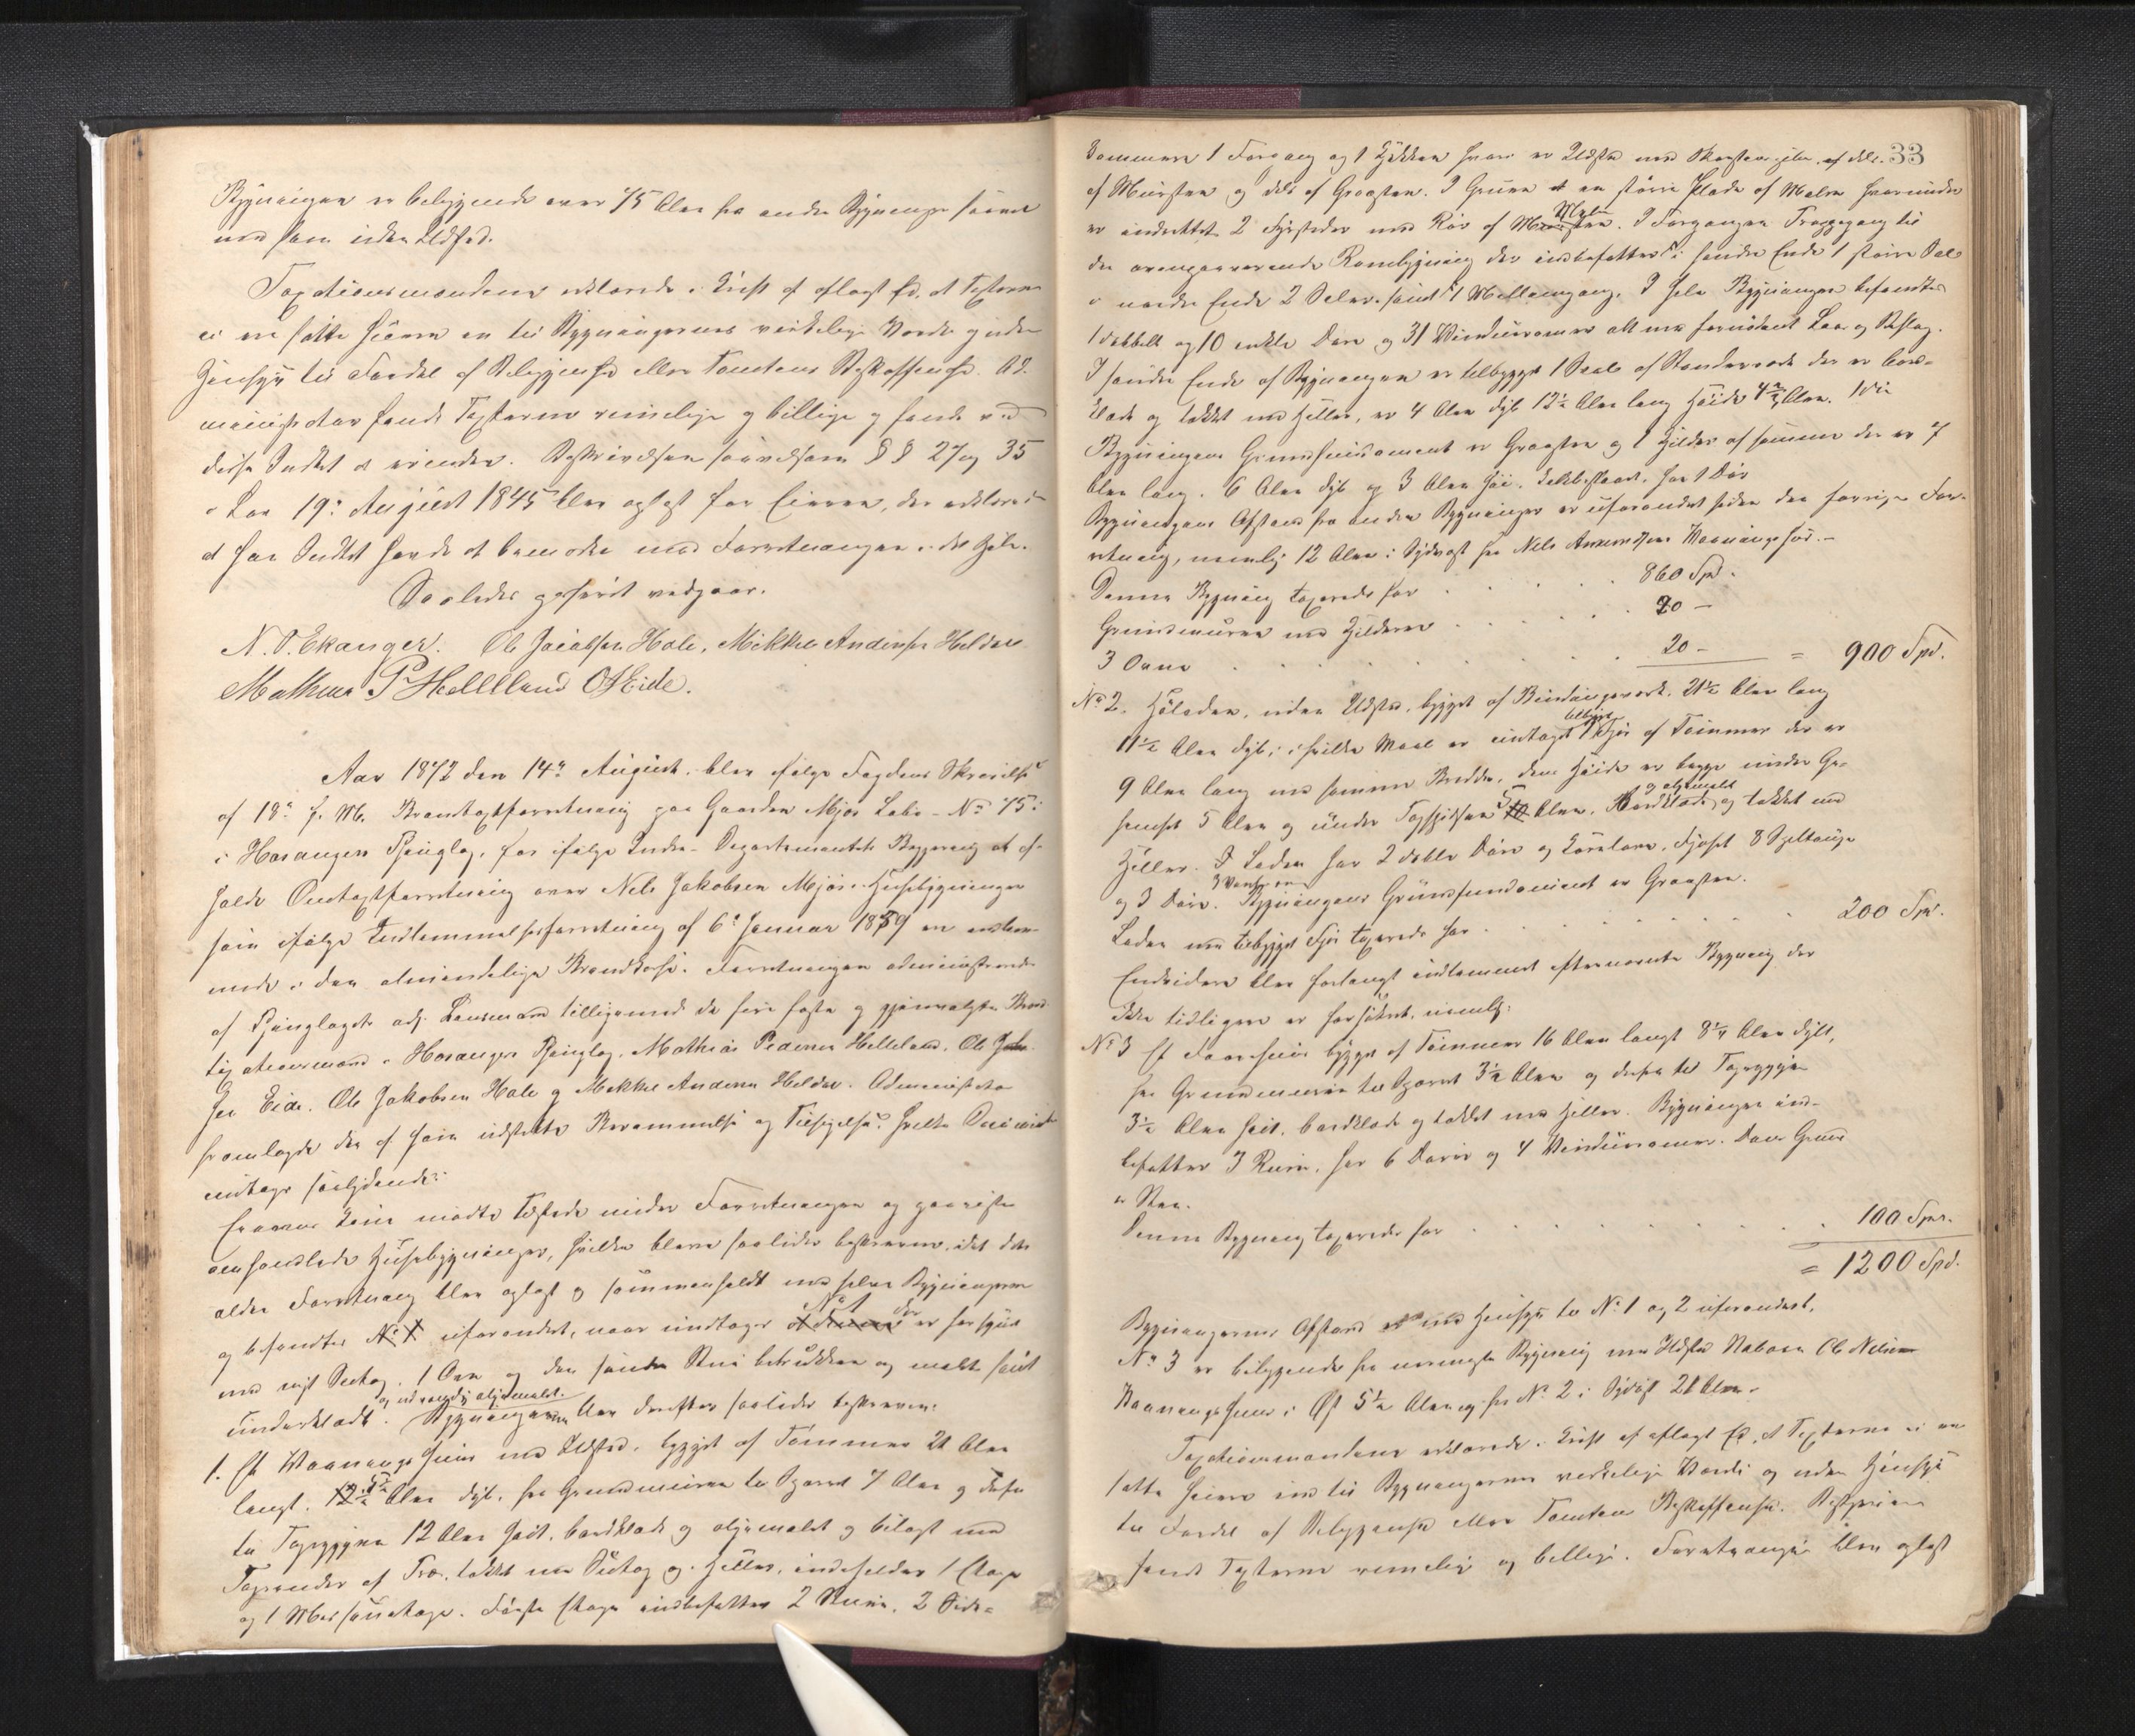 Bygningen er beliggende over 75 Alen fra andre Bygninger saavel
med som uden Ildsted.
Taxationsmændene erklærede i Kraft af aflagt Ed, at Taxterne
ei ere satte høiere en til Bygningernes virkelige Værdi og uden
Hensyn til Fordel af Beliggenhed eller Tomtens Beskaffenhed. Ad-
ministrator fandt Taxterne rimelige og billige og fandt ved
disse Intet at erindre. Beskrivelsen saavelsom §§ 27 og 35
i Lov 19de August 1845 blev oplæst for Eieren, der erklærede
at han Intet havde at bemærke med Forretningen i det Hele.
Saaledes passeret vedgaar.
N. O. Ekanger. Ole Jacobsen Hole, Mikkel Andersen Heldal
Mathias P Hellland O H Eide.
Aar 1872 den 14de August, blev ifølge Fogdens Skrivelse
af 18de f. M. Brandtaxtforretning paa Gaarden Mjøs Løbe-No 75
i Hosangers Thinglag, for ifølge Indre-Departementets Begjæring at af-
holde Omtaxtforretning over Nils Jakobsen Mjøs's Husebygninger
som ifølge Indlemmelsesforretning af 6te Januar 1859 ere indlem-
mede i den almindelige Brandkasse. Forretningen administreredes
af Thinglagets adj. Lensmand tilligemed de fire faste og gjenvalgte Brand-
taxationsmænd i Hosangers Thinglag, Mathias Pedersen Helleland, Ole Johan-
sen Eide, Ole Jakobsen Hole og Mikkel Andersen Heldal. Administrator
fremlagde den af ham udstedte Berammelse og Tilsigelse, hvilket Document
indtages saalydende:
Eieren Selv mødte tilstede under Forretningen og paaviste
omhandlede Husebygninger, hvilke bleve saaledes beskrevne, idet den
ældre Forretning blev oplæst og sammenholdt med selve Bygningerne
og befandtes No 1 uforandret, naar undtages No 1 der er forsynet
med nyt Stentag, 1 Ovn og den søndre Stue betrukken og malt samt
underklædt og udvendig oljemalet. Bygningerne blev derefter saaledes beskreven:
1. Et Vaaningshuus med Ildsted, bygget af Tømmer 21 Alen
langt, 12½ Alen dyb, fra Grundmuren til Sparret 7 Alen og derfra
til Tagryggen 12 Alen høit, bordklædt og oljemalet og belagt med
Tagrender af Træ, tækket med Stentag og Heller, indeholder 1 Etage
og 1 Mansardetage. Første Etage indbefatter 2 Stuer, 2 Side-
33
kammere 1 Forgang og 1 Kjøkken hvori er Ildsted med Skorstenspibe, af dels
af Mursten og dels af Graasten. I Gruen er en større Plade af Malm hvorunder
er indrettet 2 Fyrsteder med Rør af Malm. I Forgangen Trappegang til
den ovenpaaværende Rambygning der indbefatter i søndre Ende 1 større Sal
i nordre Ende 2 Saler samt 1 Mellemgang. I hele Bygningen befandtes
1 dobbelt og 10 enkle Døre og 31 Vinduesrammer alt med fornødent Laas og Beslag.
I søndre Ende af Bygningen er tilbygget 1 Sval af Standerværk der er bord-
klædt og tækket med Heller, er 4 Alen dyb 12½ Alen lang Høide 4½ Alen.
Bygningens Grundfundament er Graasten og 1 Kjelder af samme der er 7
Alen lang, 6 Alen dyb og 3 Alen høi. har 1 Dør
Bygningens Afstand fra andre Bygninger er uforandret siden den forrige For-
retning, nemlig 12 Alen i Sydvest fra Nils Amundsens Vaaningshus.-
Denne Bygning taxeredes for . . . 860 Spd.
Grundmuren med Kjelderen . . . 20 -
3 Ovne . . . 20 - = 900 Spd.
No 2. Høladen, uden Ildsted, bygget af Bindingsværk, 21½ Alen lang
11½ Alen dyb, i hvilke Maal er indtaget tilbygt 1 Fjøs af Tømmer der er
9 Alen lang med samme Bredde, dens Høide er begge under Ge-
simset 5 Alen og under Tagspidsen 5 Alen, Bordklædt og oljemalt og tækket med
Heller. I Laden har 2 doble Døre og Kørelem, Fjøset 8 Spiltauge
og 3 Døre. 3 Vinduer Bygningens Grundfundament er Graasten.
Laden med tilbygget Fjøs taxeredes for . . . 200 Spd.
Endvidere blev forlangt indlemmet efternævnte Bygning der
ikke tidligere er forsikret, nemlig:
No 3 Et Faarehuus bygget af Tømmer 16 Alen langt 8¼ Alen dybt,
fra Grundmuren til Sparret 3½ Alen og derfra til Tagryggen
3½ Alen høit, bordklædt og tækket med Heller. Bygningen ind-
befatter 3 Rum, har 6 Dører og 4 Vinduesrammer. Dens Grund
er Sten.
Denne Bygning taxeredes for . . . 100 Spd.
= 1200 Spd.
Bygningernes Afstand er med Hensyn til No 1 og 2 uforandret.
No 3 er beliggende fra nærmeste Bygning med Ildsted Naboen Ole Nilsens
Vaaningshuus i Øst 5½ Alen og fra No 2 i Sydøst 21 Alen.
Taxationsmændene erklærede i Kraft af aflagt Ed, at Taxterne ei ere
satte høiere end til Bygningernes virkelige Værdi og uden Hensyn
til Fordel af Beliggenhed eller Tomtens Beskaffenhed. Bestyreren
fandt Taxterne rimelig og billige. Forretningen blev oplæst